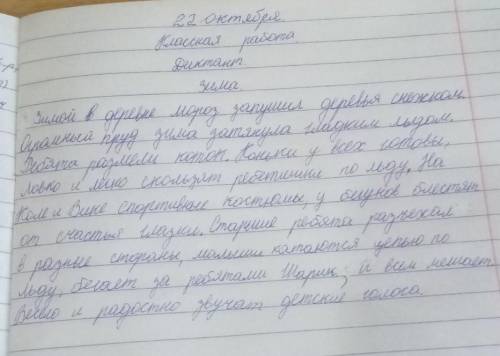 22 октября.
Классная работа.
Диктант.
Зима.
Зимой в деревне мороз запушил деревья снежком.
Огромный пруд зима затянула гладким льдом.
Ребята размели каток. Коньки у всех готовы,
ловко и легко скользят ребятишки по льду. На
Коле и Вике спортивные костюмы, у бегунов блестят
от счастья глазки. Старшие ребята разъехались
в разные стороны, малыши катаются цепью по
льду, бегает за ребятами Шарик, и всем мешает.
Весело и радостно звучат детские голоса.